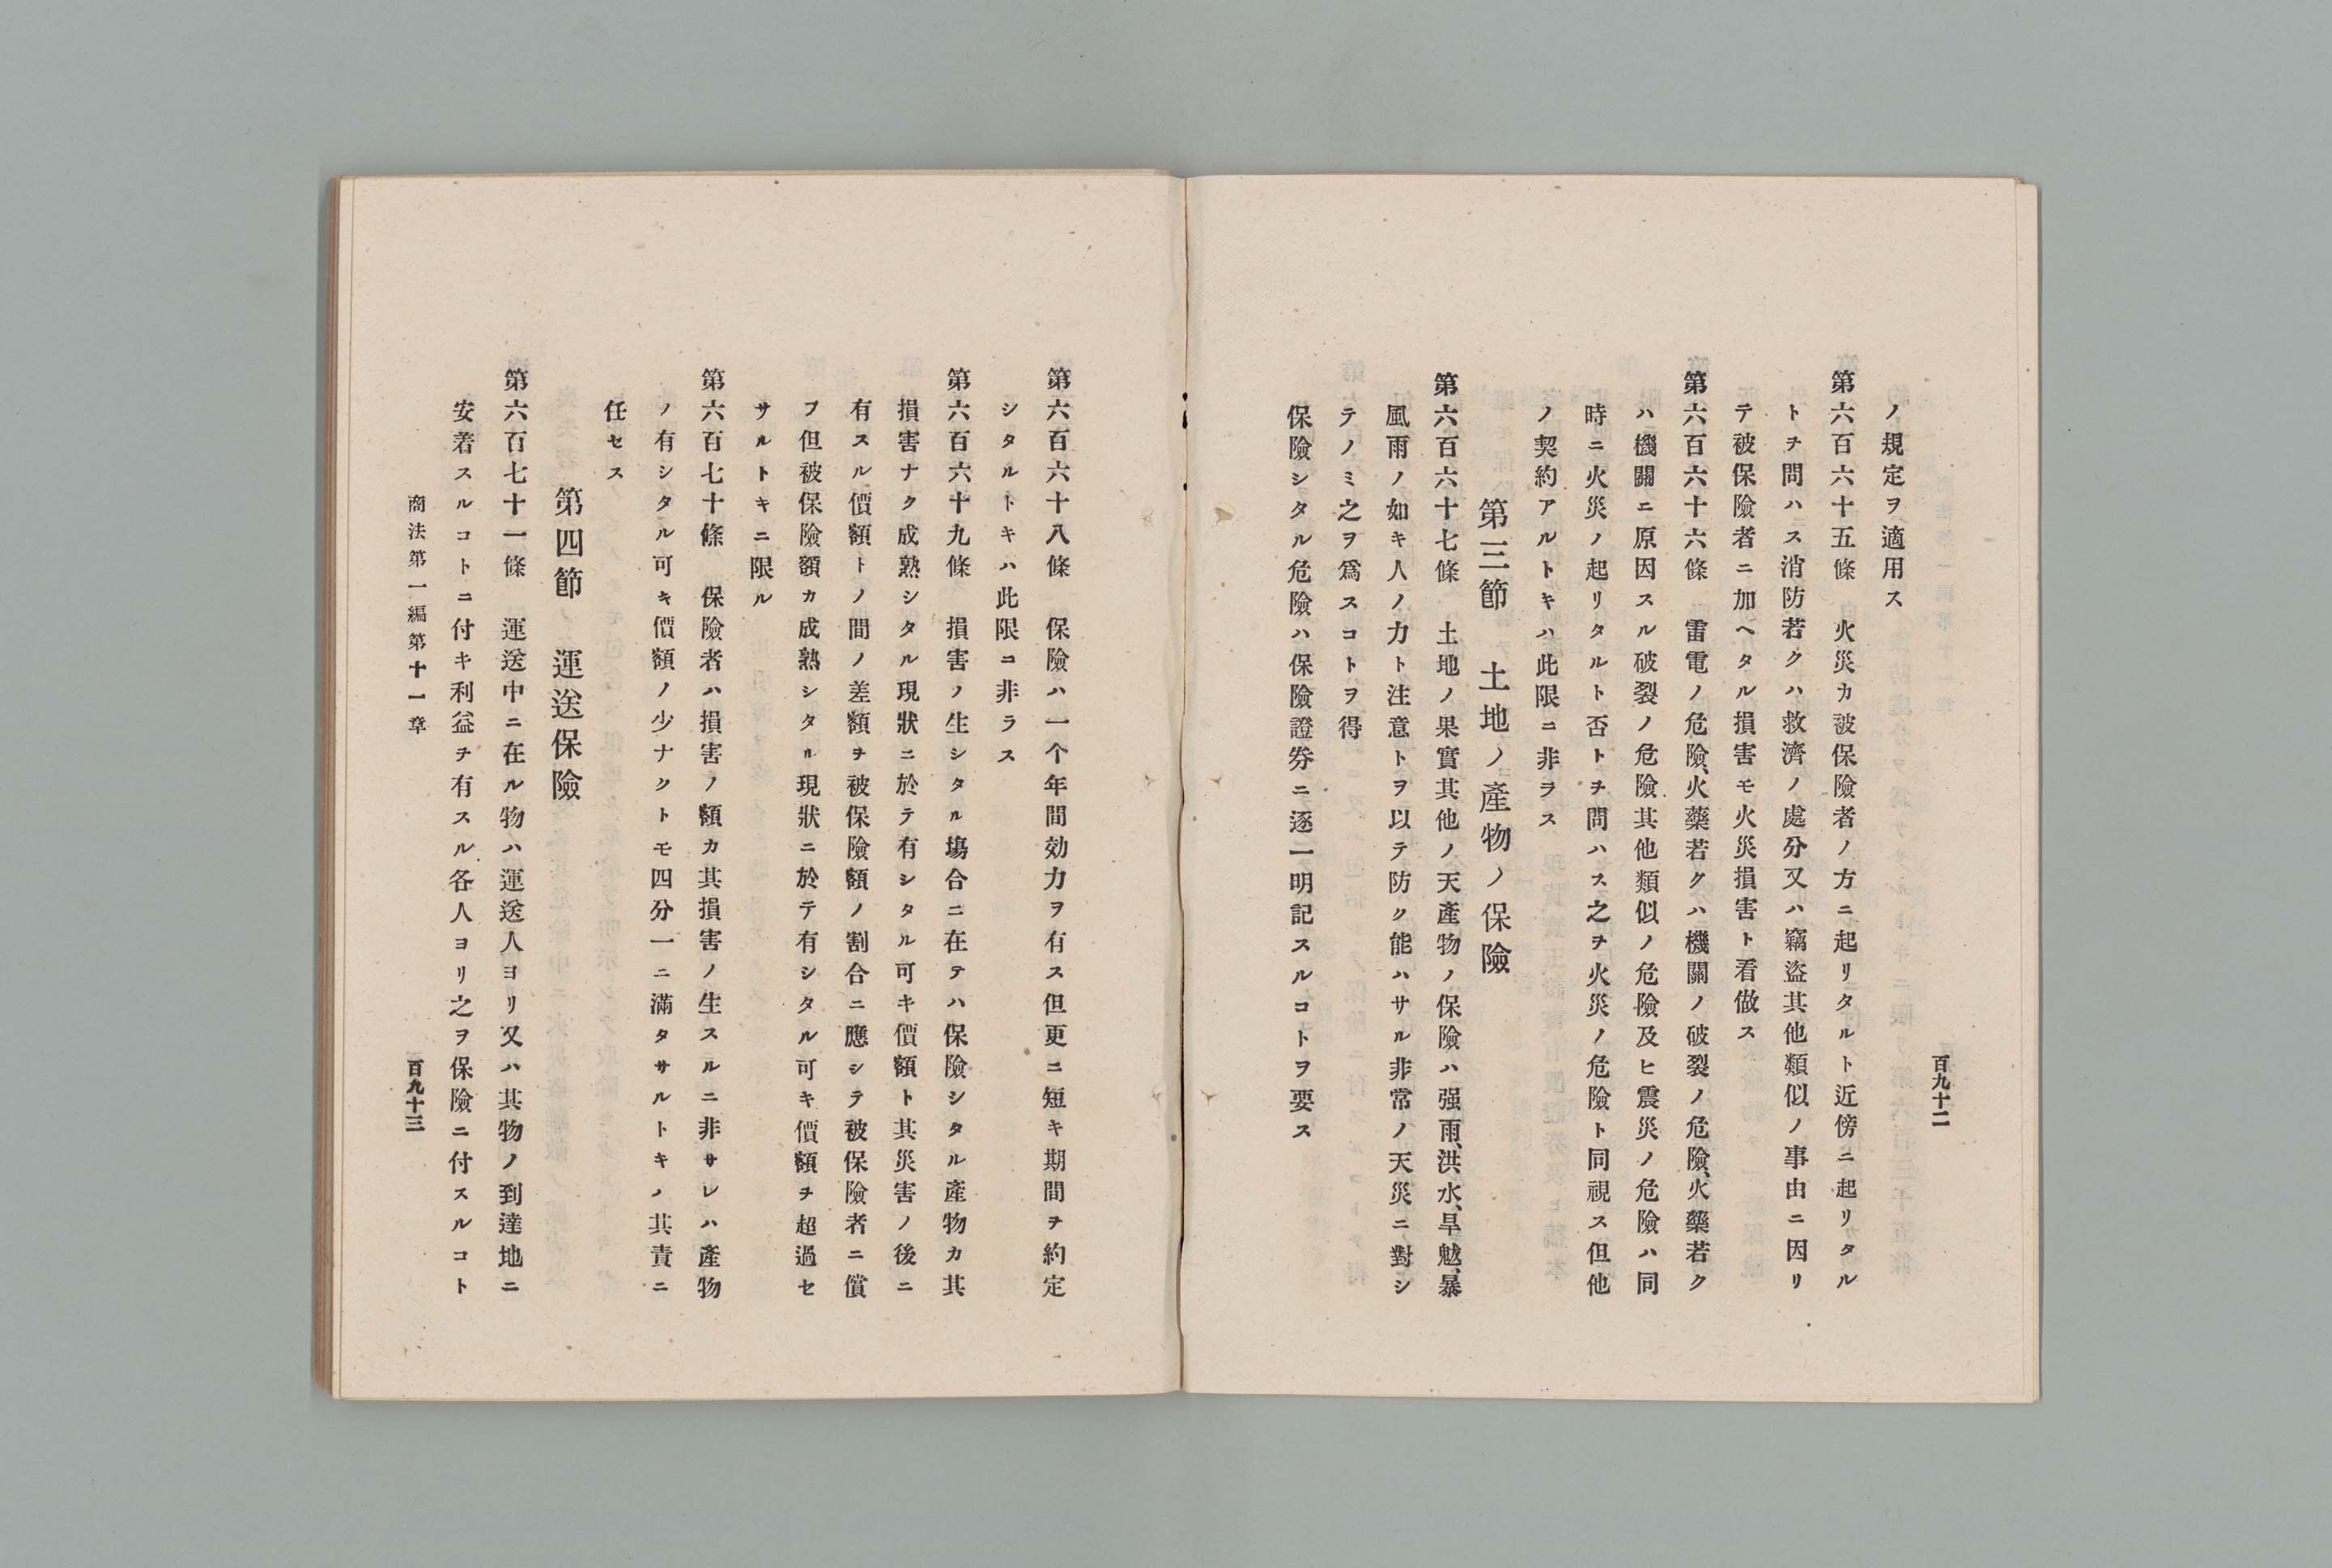 百九十二
ノ規定ヲ適用ス
第六百六十五條　火災カ被保險者ノ方ニ起リタルト近傍ニ起リタル
トヲ問ハス消防若クハ救濟ノ處分又ハ竊盜其他類似ノ事由ニ因リ
テ被保險者ニ加ヘタル損害モ火災損害ト看做ス
第六百六十六條　雷電ノ危險、火藥若クハ機關ノ破裂ノ危險、火藥若ク
ハ機關ニ原因スル破裂ノ危險其他類似ノ危險及ヒ震災ノ危險ハ同
時ニ火災ノ起リタルト否トヲ問ハス之ヲ火災ノ危險ト同視ス但他
ノ契約アルトキハ此限ニ非ラス
第三節　土地ノ產物ノ保險
第六百六十七條　土地ノ果實其他ノ天產物ノ保險ハ强雨、洪水、旱魃、暴
風雨ノ如キ人ノ力ト注意トヲ以テ防ク能ハサル非常ノ天災ニ對シ
テノミ之ヲ爲スコトヲ得
保險シタル危險ハ保險證劵ニ逐一明記スルコトヲ要ス
第六百六十八條　保險ハ一个年間効力ヲ有ス但更ニ短キ期間ヲ約定
シタルトキハ此限コ非ラス
第六百六十九條　損害ノ生シタル塲合ニ在テハ保險シタル產物カ其
損害ナク成熟シタル現狀ニ於テ有シタル可キ價額ト其災害ノ後ニ
有スル價額トノ間ノ差額ヲ被保險額ノ割合ニ應シテ被保險者ニ償
フ但被保險額カ成熟シタル現狀ニ於テ有シタル可キ價額ヲ超過セ
サルトキニ限ル
第六百七十條　保險者ハ損害ノ額カ其損害ノ生スルニ非サレハ產物
ノ有シタル可キ價額ノ少ナクトモ四分一ニ滿タサルトキノ其責ニ
任セス
第四節　運送保險
第六百七十一條　運送中ニ在ル物ハ運送人ヨリ又ハ其物ノ到達地ニ
安着スルコトニ付キ利益ヲ有スル各人ヨリ之ヲ保險ニ付スルコト
商法第一編第十一章
百九十三